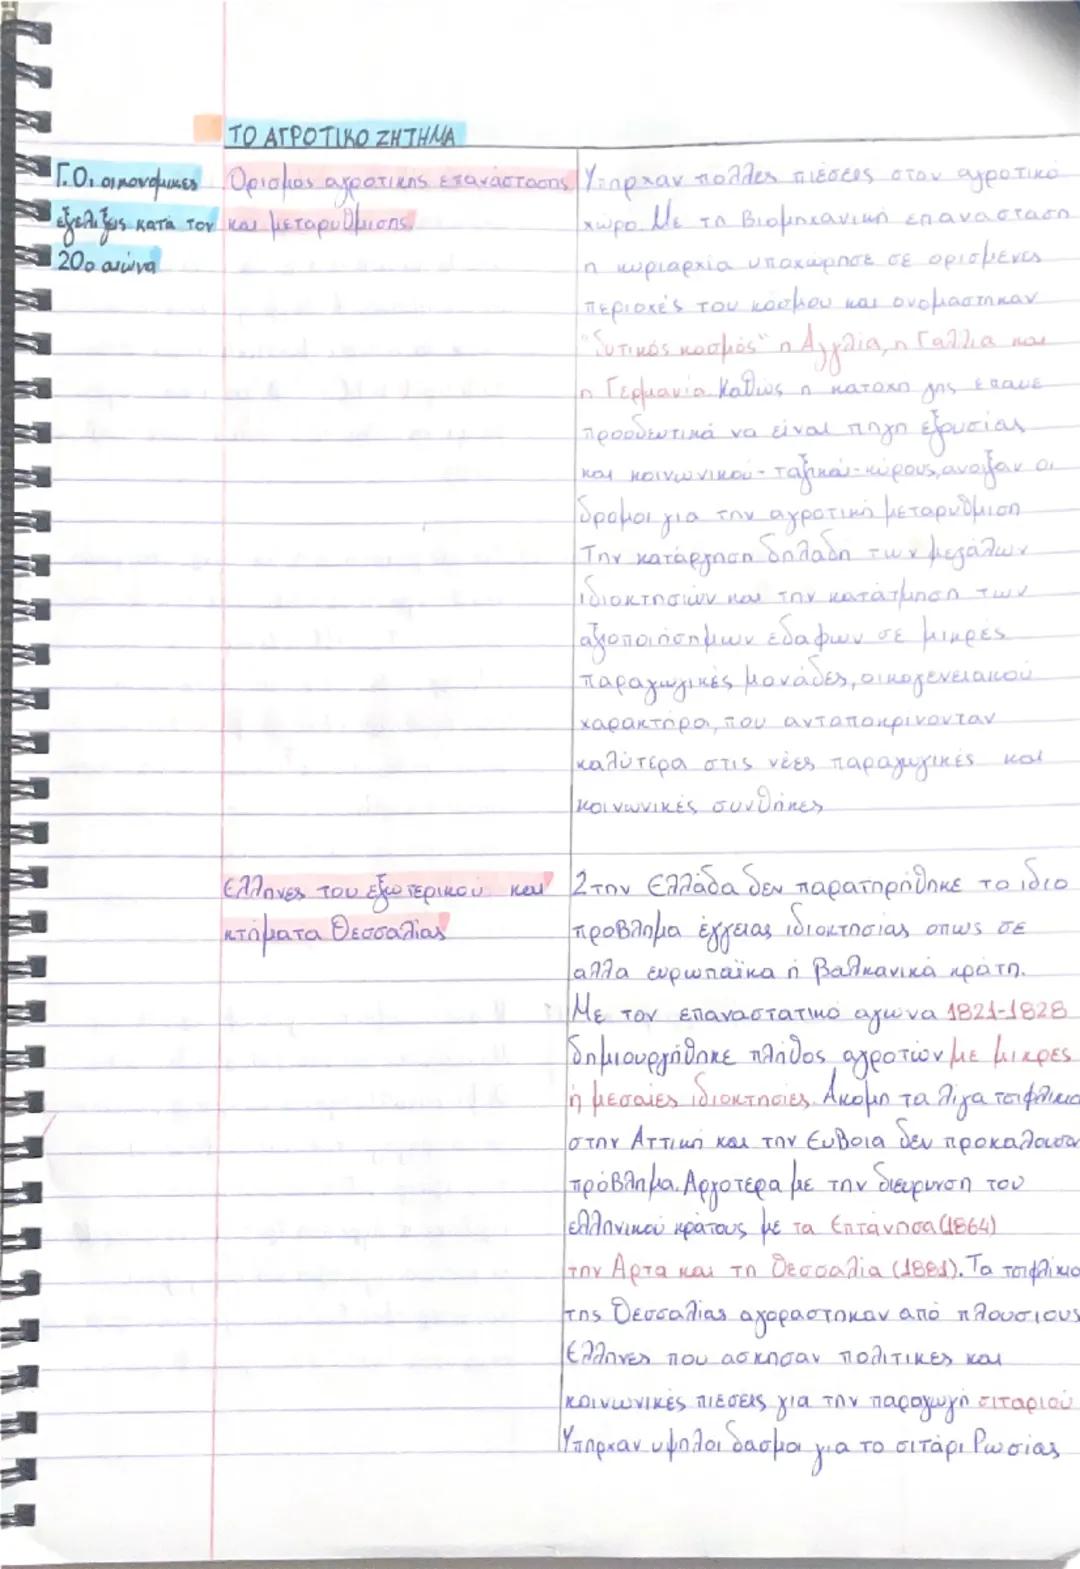 ΤΟ ΑΓΡΟΤΙΚΟ ΖΗΤΗΜΑ
Γ. Οι οικονομικες
εξελιξεις κατα τον
20ο αιώνα
Ορισμος αγροτικης επανάστασης
και μεταρυθμισης.
Υπηρχαν πολλες πιέσεις στον αγροτικό
χώρο. Με τη Βιομηχανικη επανασταση
η κυριαρχία υποχώρησε σε ορισμενες
περιοχές του κοσμου και ονομαστηκαν
"δυτικός κοσμός" η Αγγλία, η Γαλλια και
η Γερμανία. Καθως η κατοχη γης επαψε
προοδευτικά να είναι πηγη εξουσίας
και κοινωνικού-ταξικού-κύρους, ανοιξαν οι
δρομοι για την αγροτική μεταρυθμιση
Την κατάργηση δηλαδη των μεγάλων
ιδιοκτησιών και την κατάτμηση των
αξιοποιησημων εδαφων σε μικρές
παραγωγικές μονάδες, οικογενειακού
χαρακτήρα, που ανταποκρίνονταν
καλύτερα στις νέες παραγωγικές και
κοινωνικές συνθήκες
Ελληνες του εξωτερικου και
κτήματα Θεσσαλίας
Στην Ελλάδα δεν παρατηρήθηκε το ίδιο
πρόβλημα έγγειας ιδιοκτησίας οπως σε
αλλα ευρωπαϊκα ή βαλκανικά κράτη.
Με τον επαναστατικό αγωνα 1821-1828
δημιουργήθηκε πλήθος αγροτών με μικρες
ή μεσαίες ιδιοκτησίες. Ακομη τα λίγα τσιφλίκια
στην Αττική και την Ευβοια δεν προκαλουσαν
πρόβλημα. Αργοτερα με την διευρυνση του
ελληνικού κράτους με τα Επτάνησα (1864)
την Αρτα και τη Θεσσαλία (1881). Τα τσιφλίκια
της Θεσσαλίας αγοραστηκαν από πλουσιους
Ελληνες που ασκησαν πολιτικες και
κοινωνικές πιεσεις για την παραγωγή σιταριού
Υπηρχαν υψηλοι δασμοι για το σιτάρι Ρωσίας